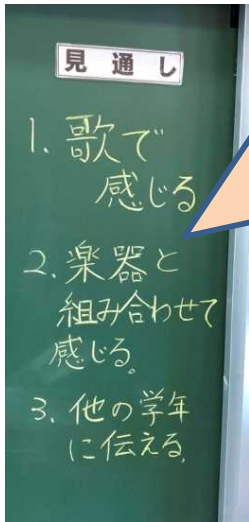 見通し
1. 歌で
感じる
2. 楽器と
組み合わせて
感じる。
3. 他の学年
に伝える。